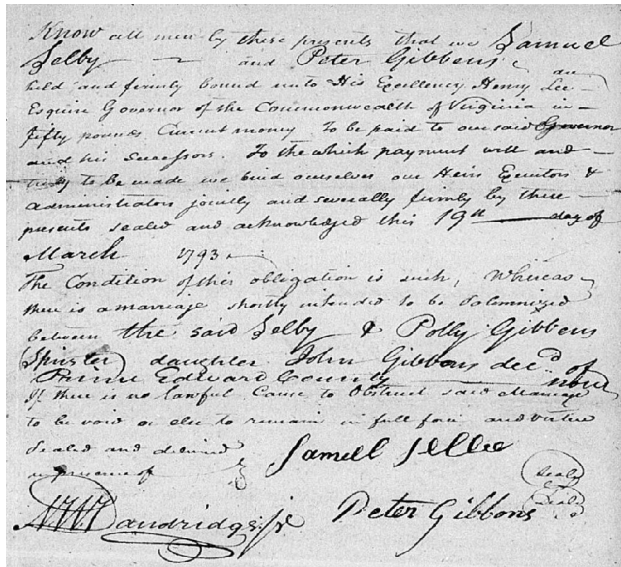 Know all men by these presents that we Samuel
Selby — and Peter Gibbens, are
held and firmly bound unto His Excellency Henry Lee
Esquire Governor of the Commonwealth of Virginia in —
fifty pounds Current money To be paid to our said Governor
and his Successors. To the which payment well and —
truly to be made we bind ourselves our Heirs Executors &
administrators jointly and severally firmly by these —
presents sealed and acknowledged this 19th — day of
March 1793
The Condition of this obligation is such, Whereas
there is a marriage shortly intended to be Solemnized
between the said Selby & Polly Gibbens
Spinster daughter John Gibbons decd. of
Prince Edward County
If there is no Lawful Cause to Obstruct said Marriage
to be void or else to remain in full force and virtue
Sealed and delivered
in presence of
Samuell Sellee
Seale
Seale
Dandridge Jr
Peter Gibbons